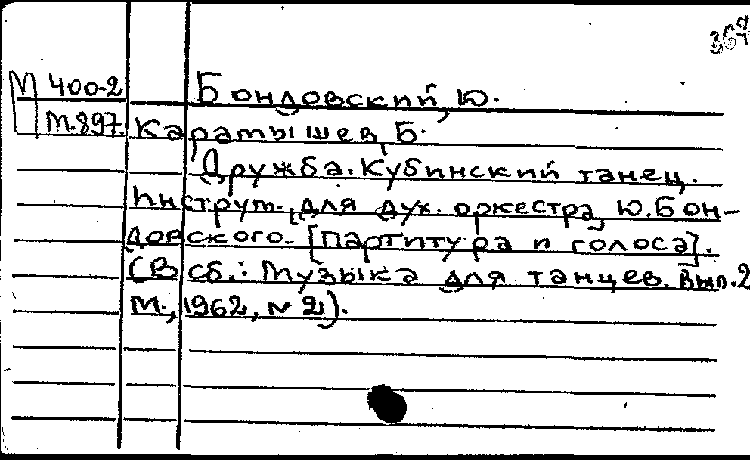 367
М 400-2
М-897
Бондовский, Ю.
Каратышев, Б.
Дружба. Кубинский танец.
Инструм. для дух. оркестра Ю. Бон-
довского. [Партитура и голоса].
(В сб.: Музыка для танцев. Вып. 2
М., 1962, № 2).